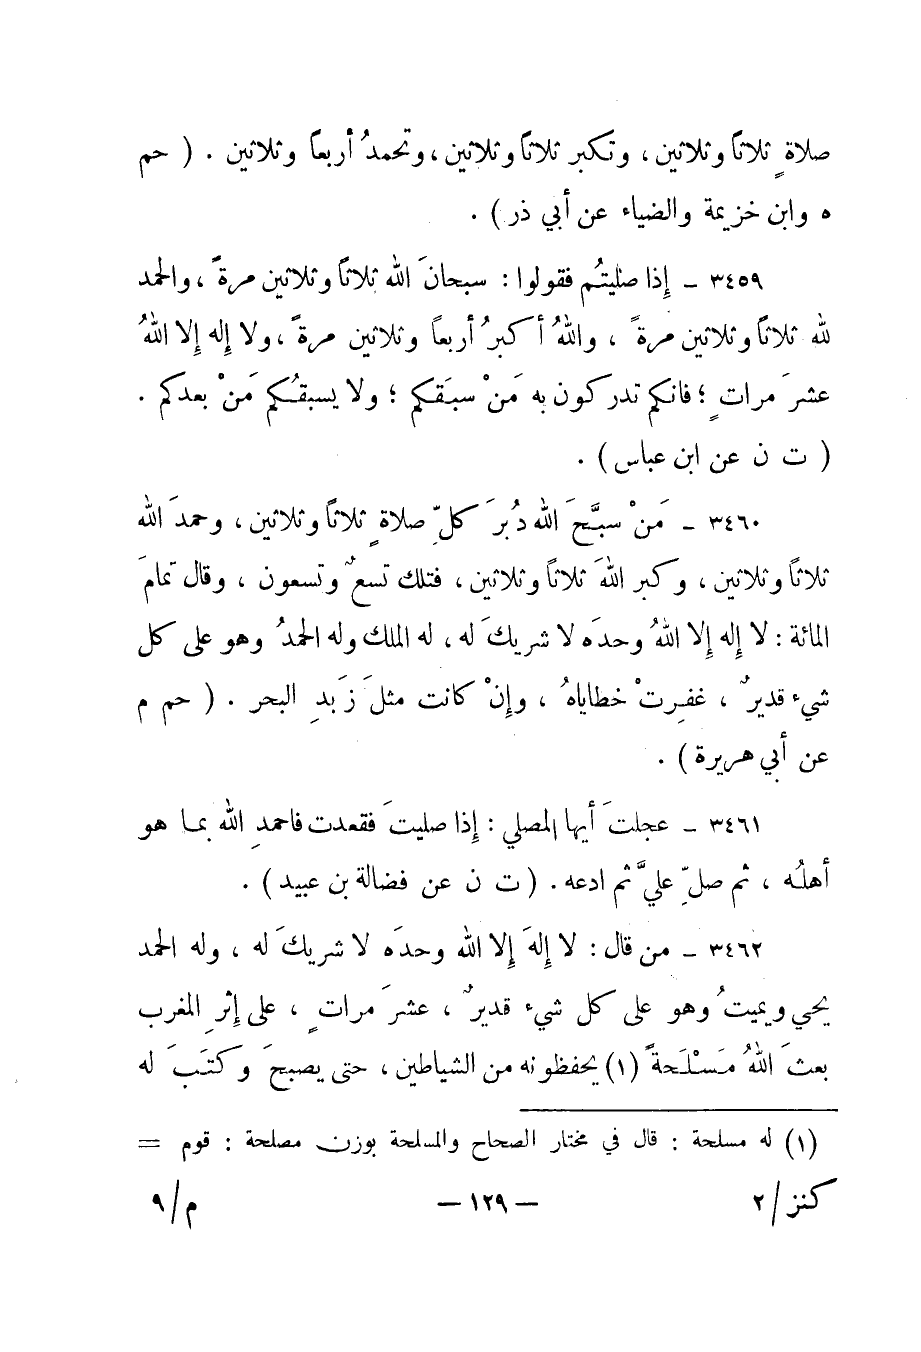 صلاةٍ ثلاثاً وثلاثين ، وتكبر ثلاثاً وثلاثين ، وتحمدُ أربعاً وثلاثين . ( حم
ه وابن خزيمة والضياء عن أبي ذر ) .
٣٤٥٩ – إذا صليتُم فقولوا : سبحانَ الله ثلاثاً وثلاثين مرةً ، والحمد
لله ثلاثاً وثلاثين مرةً ، واللهُ أكبرُ أربعاً وثلاثين مرةً ، ولا إله إلا اللهُ
عشرَ مراتٍ ؛ فانكم تدركون به مَنْ سبَقكم ؛ ولا يسبقُكم مَنْ بعدكم .
( ت ن عن ابن عباس ) .
٣٤٦٠ – مَنْ سبَّحَ الله دُبرَ كلِّ صلاةٍ ثلاثاً وثلاثين ، وحمدَ الله
ثلاثاً وثلاثين ، وكبر اللهَ ثلاثاً وثلاثين ، فتلك تسعٌ وتسعون ، وقال تمامَ
المائة : لا إله إلا اللهُ وحدَه لا شريكَ له ، له الملك وله الحمدُ وهو على كل
شيء قديرٌ ، غفرِتْ خطاياهُ ، وإنْ كانت مثلَ زَبدِ البحر . ( حم م
عن أبي هريرة ) .
٣٤٦١ – عجلتَ أيها المصلي : إذا صليتَ فقعدت فاحمدِ الله بما هو
أهلُه ، ثم صلِّ عليَّ ثم ادعه . ( ت ن عن فضالة بن عبيد ) .
٣٤٦٢ – من قال : لا إلهَ إلا الله وحدَه لا شريكَ له ، وله الحمد
يحيي ويميتُ وهو على كل شيء قديرٌ ، عشرَ مراتٍ ، على إثرِ المغرب
بعثَ اللهُ مَسْلَحةً (١) يحفظونه من الشياطين ، حتى يصبحَ وكتَبَ له
(١) له مسلحة : قال في مختار الصحاح والمسلحة بوزن مصلحة : قوم =
كنز/٢ – ١٢٩ – م/٩